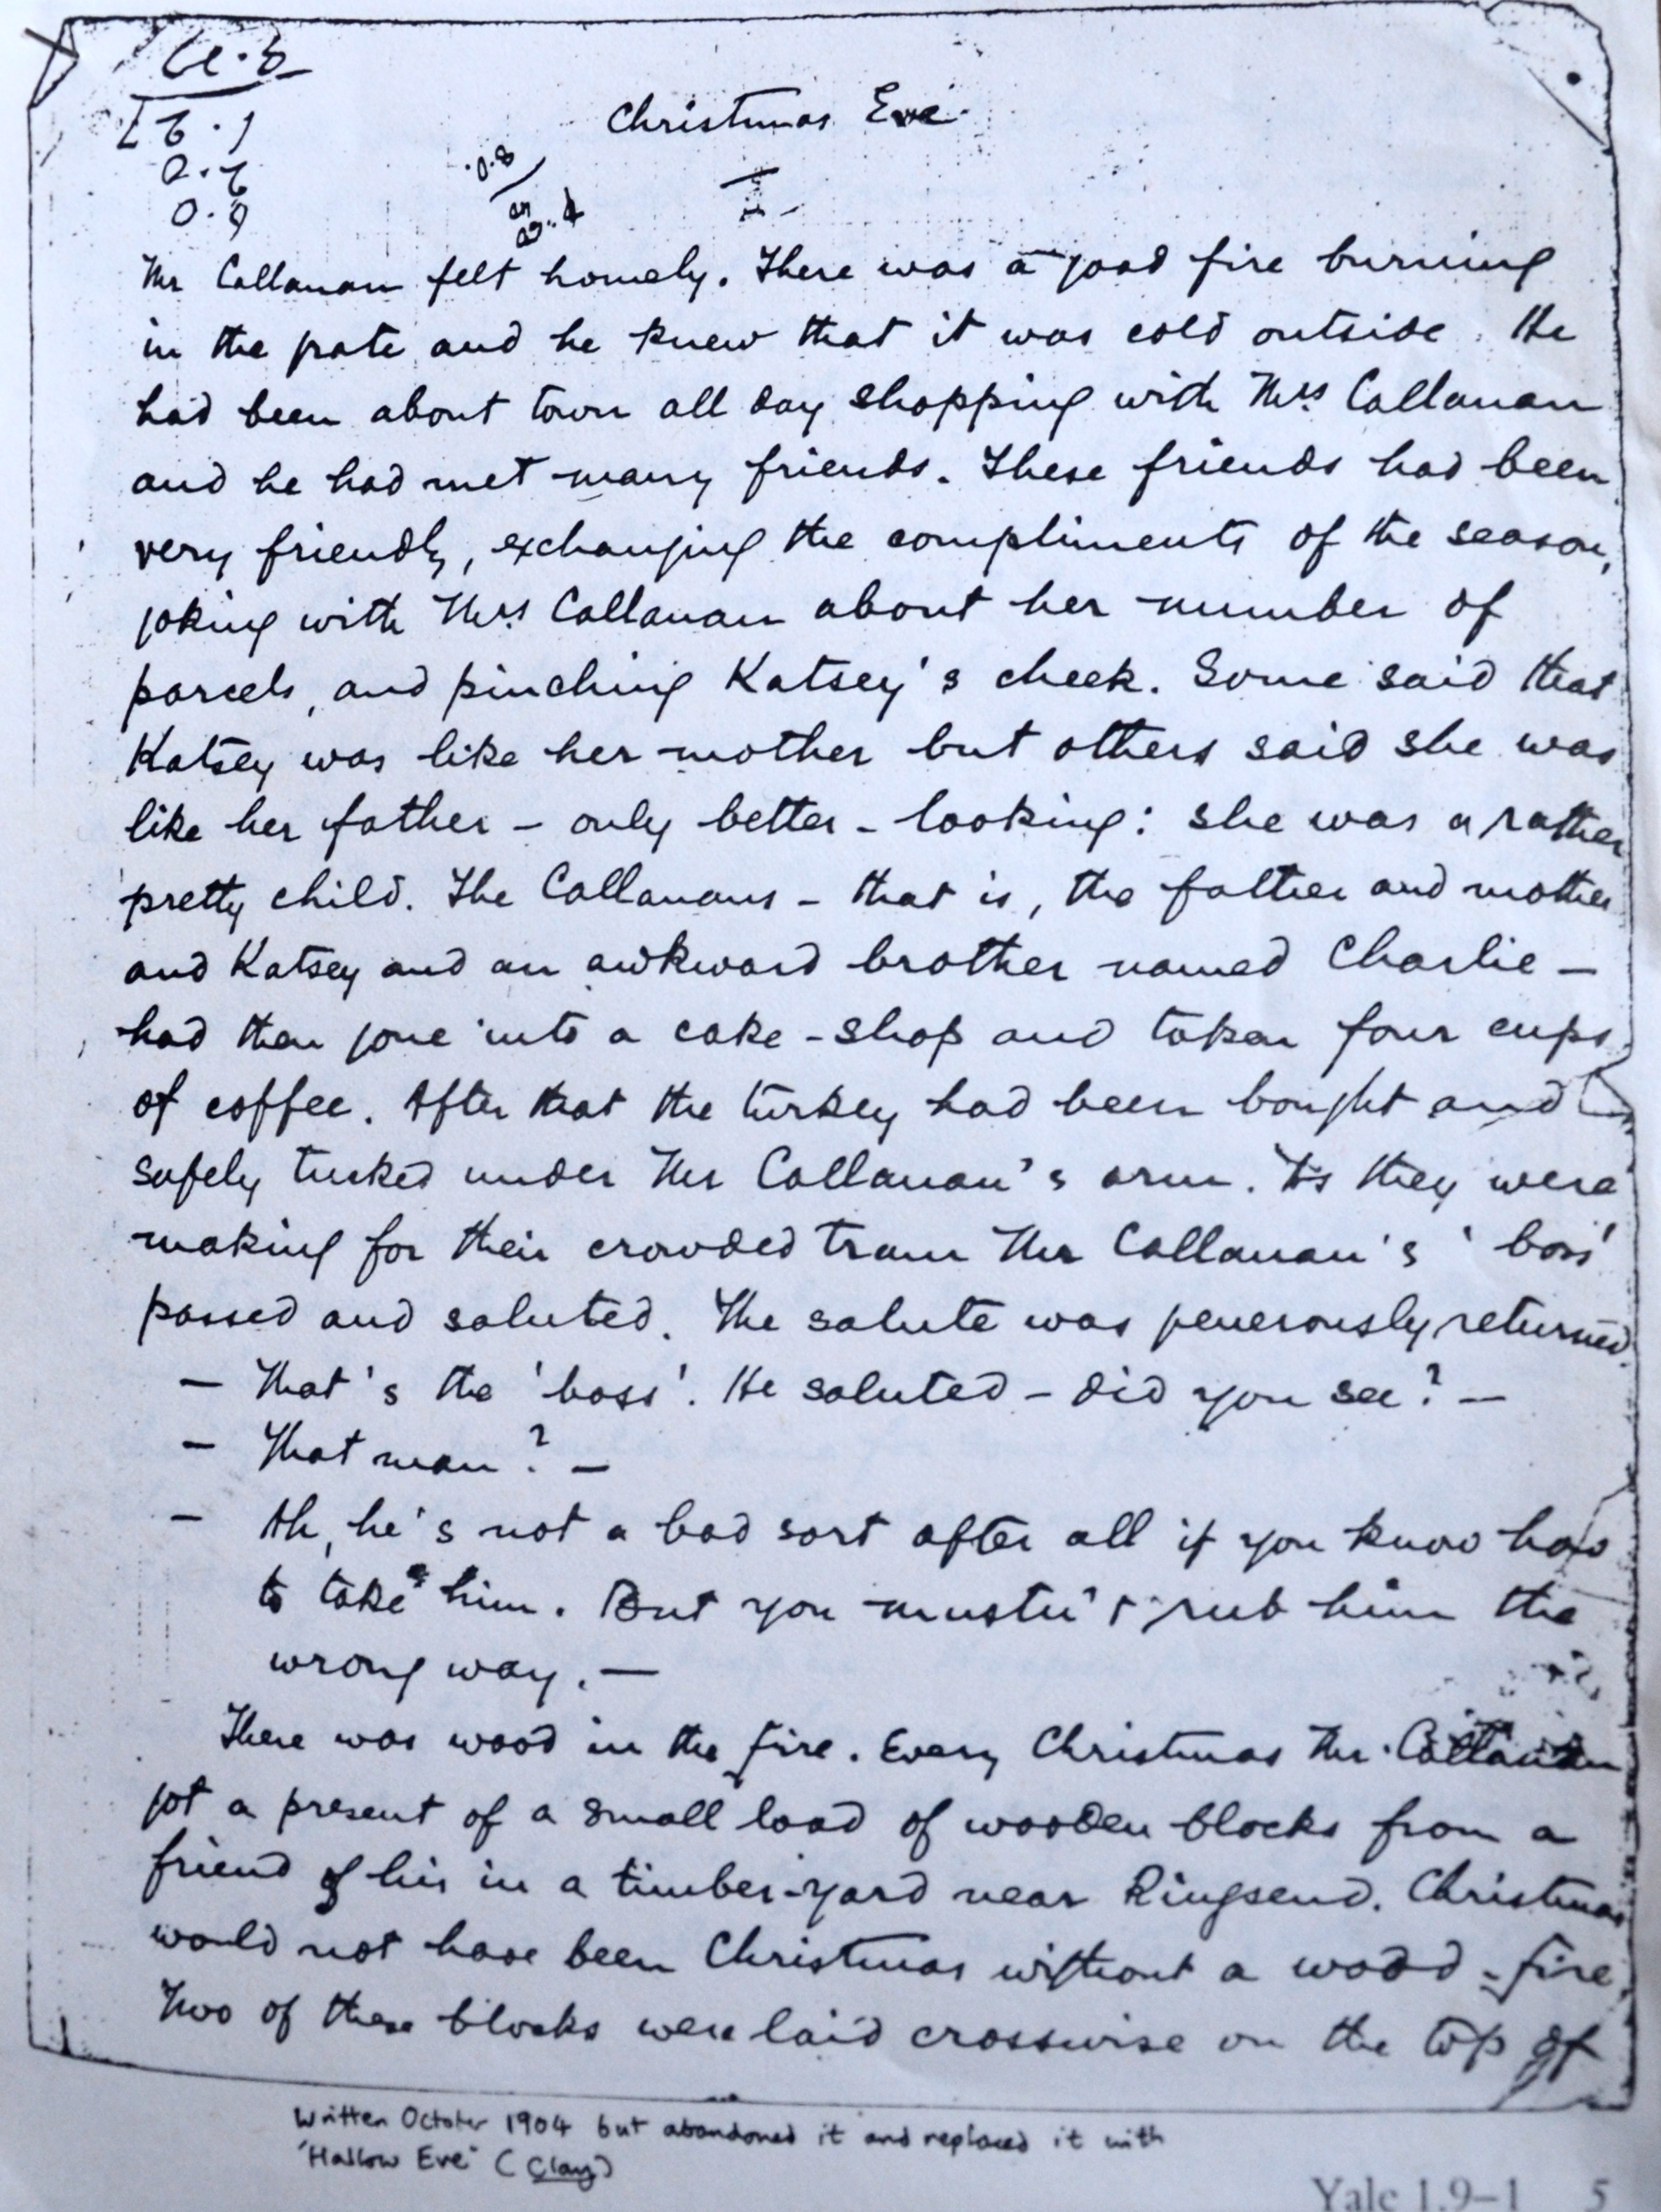 Christmas Eve.
I
Mr Callanan felt homely. There was a good fire burning
in the grate and he knew that it was cold outside. He
had been about town all day shopping with Mrs Callanan
and he had met many friends. These friends had been
very friendly, exchanging the compliments of the season,
joking with Mrs Callanan about her number of
parcels, and pinching Katsey's cheek. Some said that
Katsey was like her mother but others said she was
like her father - only better-looking: she was a rather
pretty child. The Callanans - that is, the father and mother
and Katsey and an awkward brother named Charlie -
had then gone into a cake-shop and taken four cups
of coffee. After that the turkey had been bought and
safely tucked under Mr Callanan's arm. As they were
making for their crowded tram Mr Callanan's 'boss'
passed and saluted. The salute was generously returned.
— That's the 'boss'. He saluted - did you see? —
— That man? —
— Ah, he's not a bad sort after all if you know how
to take him. But you mustn't rub him the
wrong way. —
There was wood in the fire. Every Christmas Mr. Callanan
got a present of a small load of wooden blocks from a
friend of his in a timber-yard near Ringsend. Christmas
would not have been Christmas without a wood-fire.
Two of these blocks were laid crosswise on the top of
Written October 1904 but abandoned it and replaced it with
'Hallow Eve' (Clay)
Yale 1.9–1 5